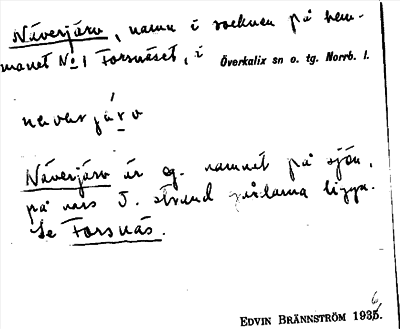 Näverjärv, namn i socknen på hem-
manet No 1 Forsnäset, i Överkalix sn o. tg. Norrb. l.
näverjärv
Näverjärv är eg. namnet på sjön,
på vars S. strand gårdarna ligga.
Se Forsnäs.
EDVIN BRÄNNSTRÖM 1936.